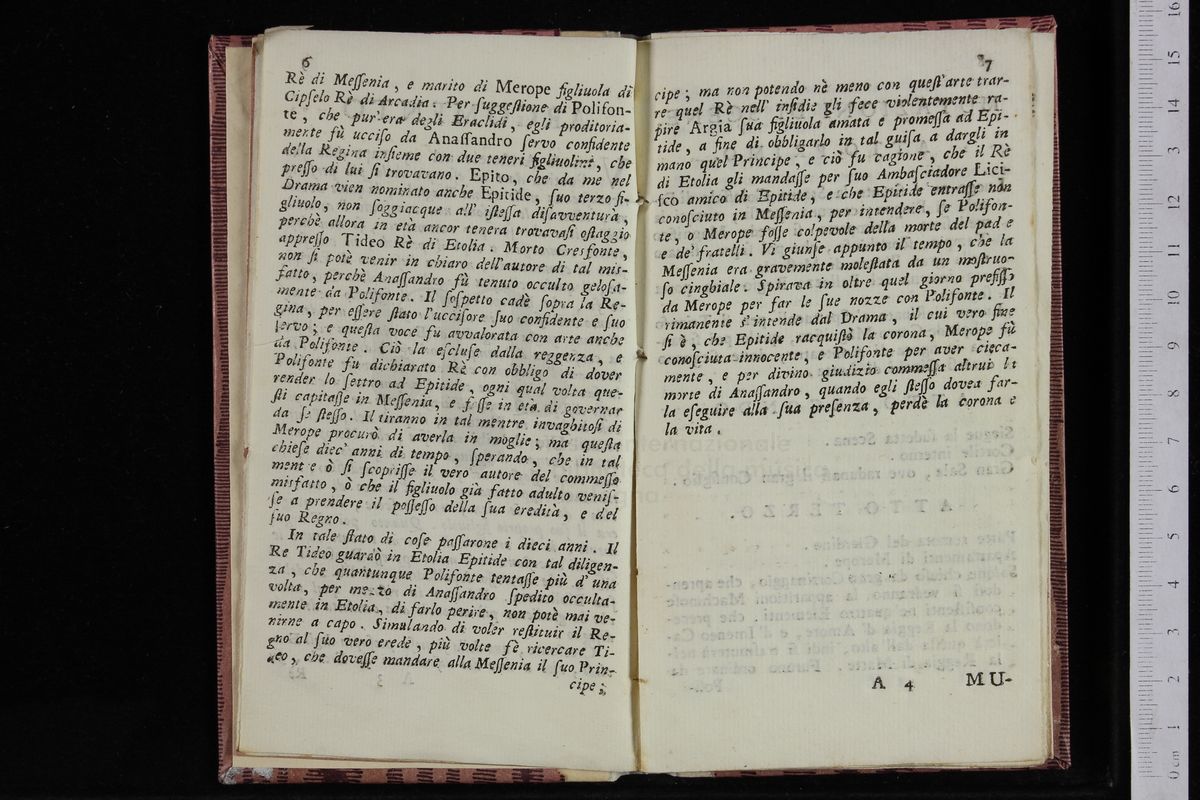 6
Rè di Meſſenia, e marito di Merope figliuola di
Cipſelo Rè di Arcadia. Per ſuggeſtione di Polifon-
te, che pur'era degli Eraclidi, egli proditoria-
mente fù ucciſo da Anaſſandro ſervo confidente
della Regina inſieme con due teneri figliuolini, che
preſſo di lui ſi trovavano. Epito, che da me nel
Drama vien nominato anche Epitide, ſuo terzo fi-
gliuolo, non ſoggiacque all' iſteſſa diſavventura,
perchè allora in età ancor tenera trovavaſi oſtaggio
appreſſo Tideo Rè di Etolia. Morto Cresfonte,
non ſi potè venir in chiaro dell'autore di tal miſ-
fatto, perchè Anaſſandro fù tenuto occulto geloſa-
mente da Polifonte. Il ſoſpetto cadè ſopra la Re-
gina, per eſſere ſtato l'ucciſore ſuo confidente e ſuo
ſervo; e queſta voce fu avvalorata con arte anche
da Polifonte. Ciò la eſcluſe dalla reggenza, e
Polifonte fu dichiarato Rè con obbligo di dover
render lo ſettro ad Epitide, ogni qual volta que-
ſti capitaſſe in Meſſenia, e foſſe in età di governar
da ſe ſteſſo. Il tiranno in tal mentre invaghitoſi di
Merope procurò di averla in moglie; ma queſta
chieſe diec' anni di tempo, ſperando, che in tal
mentre ò ſi ſcopriſſe il vero autore del commeſſo
misfatto, ò che il figliuolo già fatto adulto veniſ-
ſe a prendere il poſſeſſo della ſua eredità, e del
ſuo Regno.
In tale ſtato di coſe paſſarone i dieci anni. Il
Re Tideo guardò in Etolia Epitide con tal diligen-
za, che quantunque Polifonte tentaſſe più d'una
volta, per mezzo di Anaſſandro ſpedito occulta-
mente in Etolia, di farlo perire, non potè mai ve-
nirne a capo. Simulando di voler reſtituir il Re-
gno al ſuo vero erede, più volte fè ricercare Ti-
deo, che doveſſe mandare alla Meſſenia il ſuo Prin-
cipe;
7
cipe; ma non potendo nè meno con queſt'arte trar-
re quel Rè nell' inſidie gli fece violentemente ra-
pire Argia ſua figliuola amata e promeſſa ad Epi-
tide, a fine di obbligarlo in tal guiſa a dargli in
mano quel Principe, e ciò fu cagione, che il Rè
di Etolia gli mandaſſe per ſuo Ambaſciadore Lici-
ſco amico di Epitide, e che Epitide entraſſe non
conoſciuto in Meſſenia, per intendere, ſe Polifon-
te, o Merope foſſe colpevole della morte del pad e
e de' fratelli. Vi giunſe appunto il tempo, che la
Meſſenia era gravemente moleſtata da un moſtruo-
ſo cinghiale. Spirava in oltre quel giorno prefiſſo
da Merope per far le ſue nozze con Polifonte. Il
rimanente s'intende dal Drama, il cui vero fine
ſi è, che Epitide racquiſtò la corona, Merope fù
conoſciuta innocente, e Polifonte per aver cieca-
mente, e per divino giudizio commeſſa altrui la
morte di Anaſſandro, quando egli ſteſſo dovea far-
la eſeguire alla ſua preſenza, perdè la corona e
la vita.
A 4 MU-